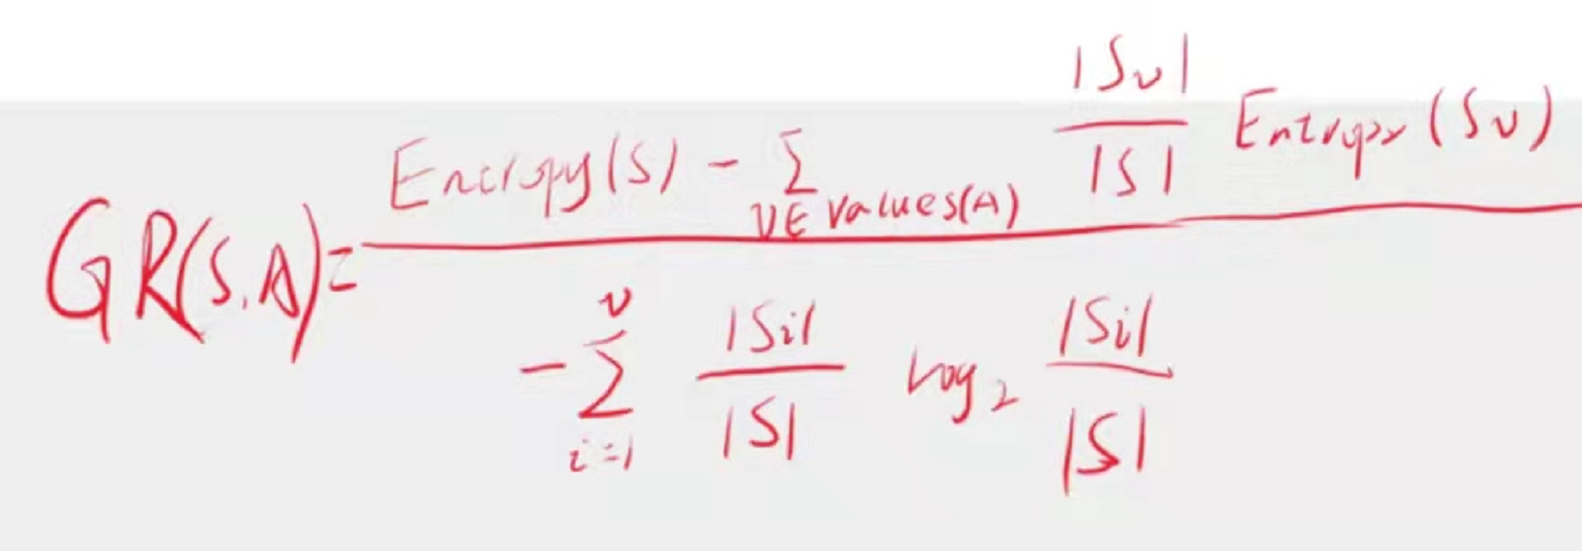 GR(S,A) = \frac{Entropy(S) - \sum_{v \in values(A)} \frac{|S_v|}{|S|} Entropy(S_v)}{-\sum_{i=1}^{v} \frac{|S_i|}{|S|} \log_2 \frac{|S_i|}{|S|}}